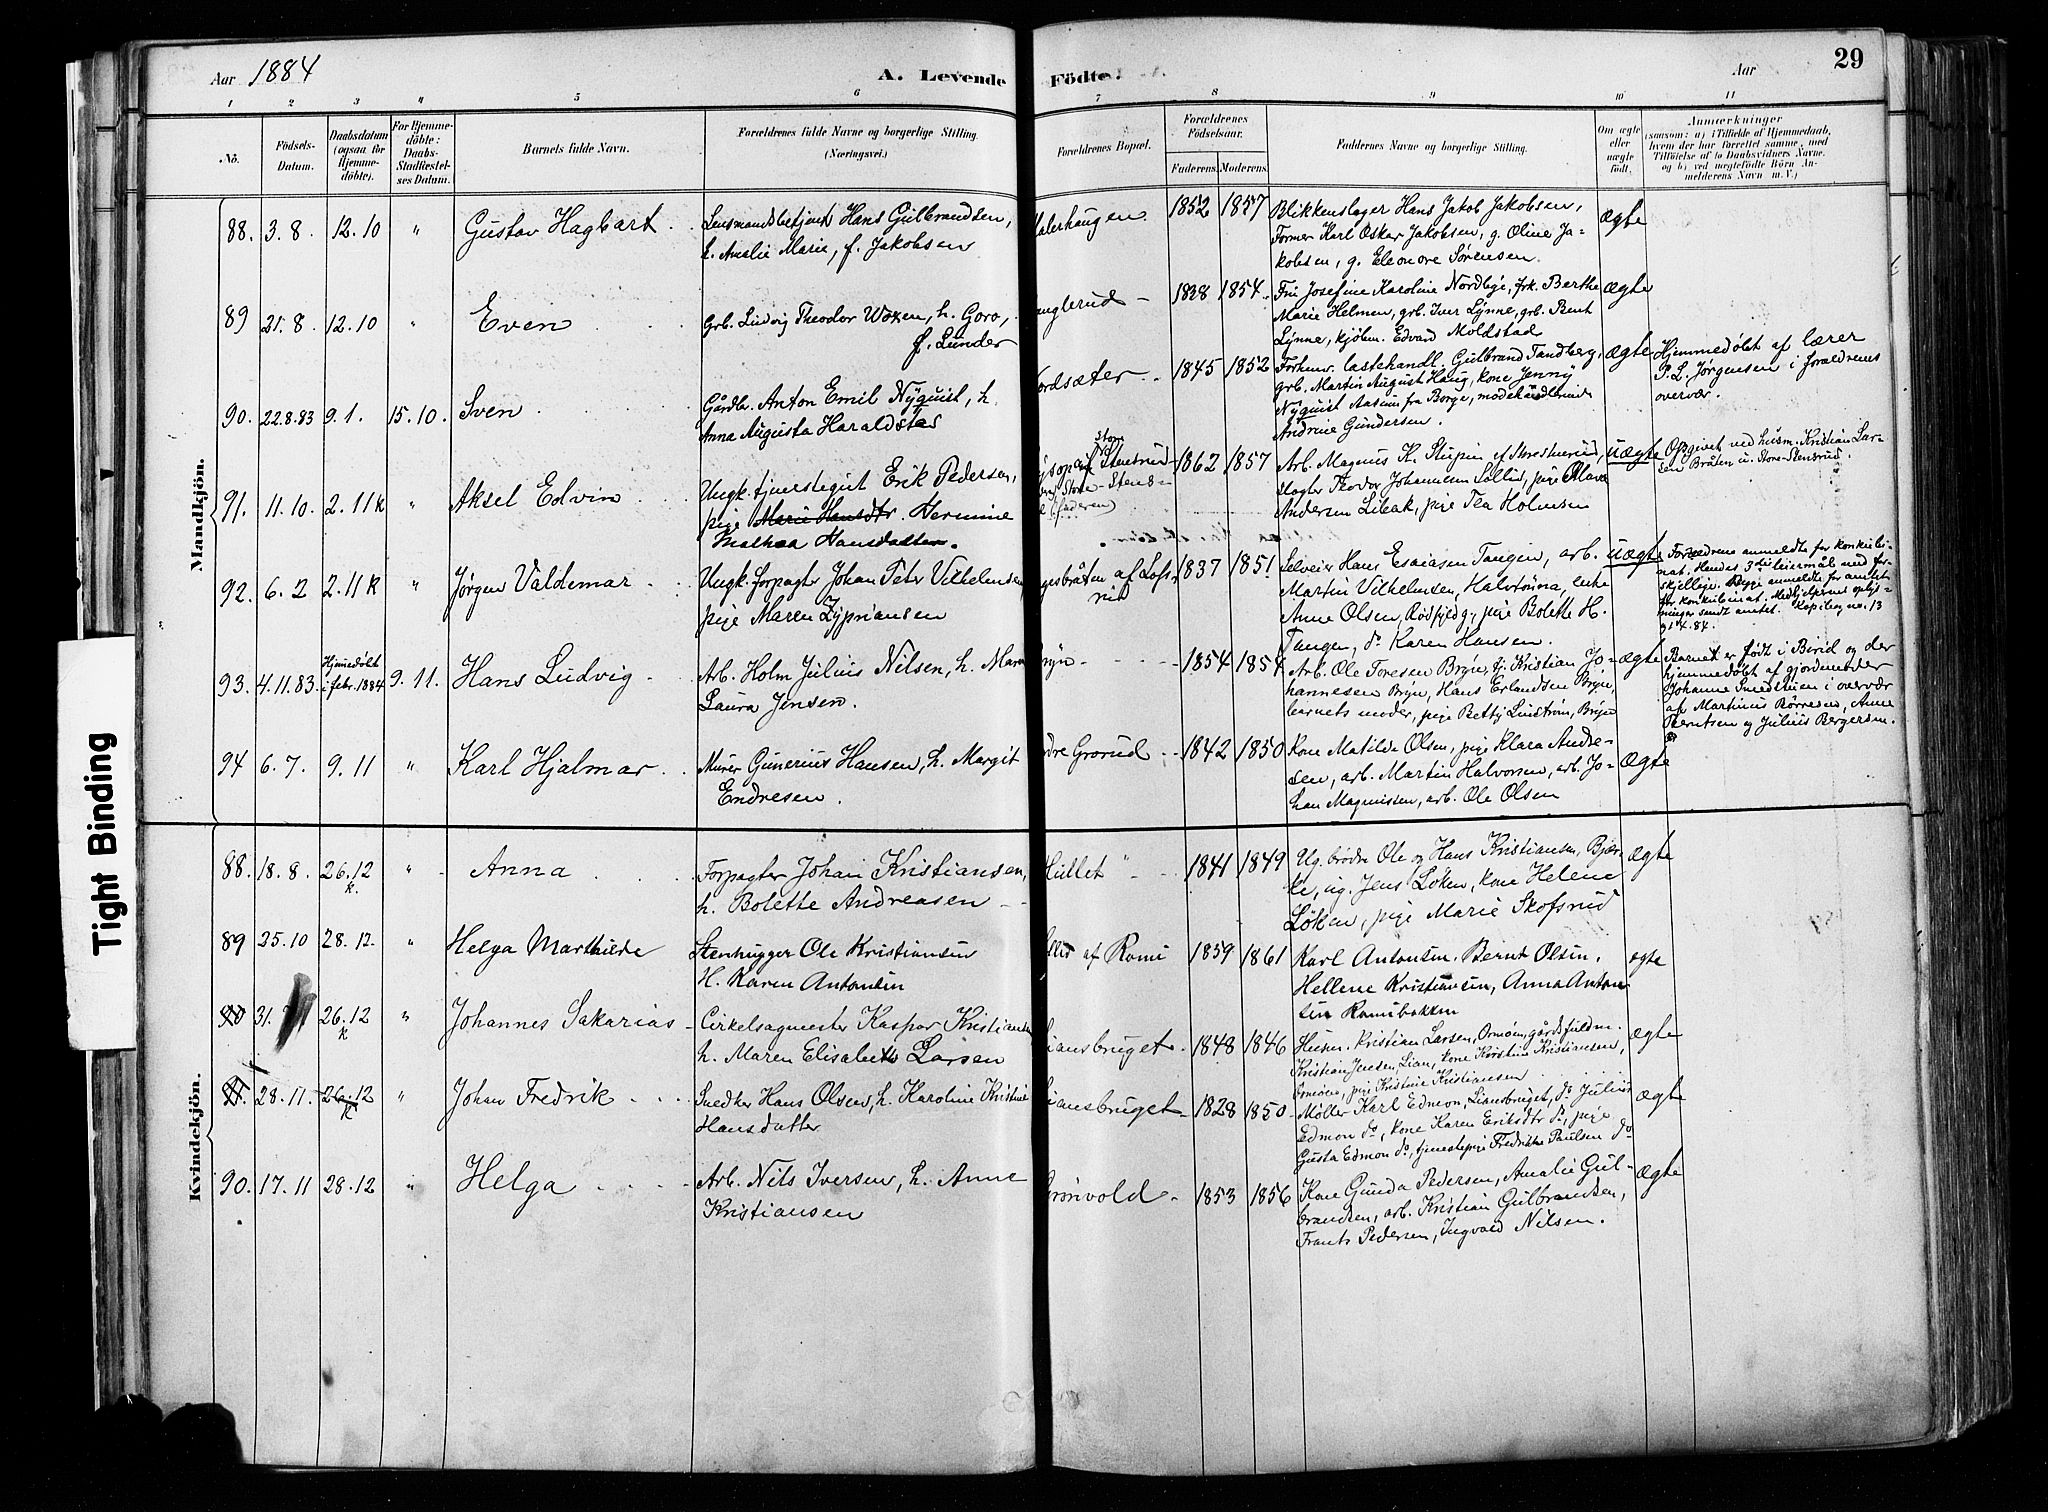 Aar 1884
A. Levende Födte.
Aar
29
1 2 3 4 5 6 7 8 9 10 11
No.
Födsels-Datum.
Daabsdatum (ogsaa for Hjemme-döbte).
For Hjemme-döbte: Daabs-Stadfæstel-ses Datum.
Barnets fulde Navn.
Forældrenes fulde Navne og borgerlige Stilling.
(Næringsvei.)
Forældrenes Bopæl.
Forældrenes Födselsaar.
Faderens. Moderens.
Faddernes Navne og borgerlige Stilling.
Om ægte eller uægte födt.
Anmærkninger
(saasom: a) i Tilfælde af Hjemmedaab,
hvem der har forrettet samme, med
Tilföielse af to Daabsvidners Navne,
og b) ved uægtefödte Börn An-
melderens Navn m. V.)
Mandkjön.
88. 3.8. 12.10 " Gustav Hagbart
Lensmandsbetjent Hans Gulbrandsen,
h. Amalie Marie, f. Jakobsen
alerhaugen 1852 1857
Blikkenslager Hans Jakob Jakobsen,
Former Karl Oskar Jakobsen, g. Oline Ja-
kobsen, g. Eleonore Sörensen.
ægte
89 21.8. 12.10 " Even
Grb. Ludvig Theodor Woxen, h. Goro,
f. Lunder
nglerud 1828 1854
Fru Josefine Karoline Nordbye, frk. Berthe
Marie Helmen, grb. Iver Lynne, grb. Bent
Lynne, kjöbm. Edvard Moldstad
ægte
90. 22.8.83 9.1. 15.10. Sven
Gårdbr. Anton Emil Nyquist, h.
Anna Augusta Haraldstad
ordsæter 1845 1852
Forhenv. lastehandl. Gulbrand Tandberg,
grb. Martin August Haug, kone Jenny
Nyquist Aasum fra Borge, modehandlerinde
Andrine Gundersen.
ægte
Hjemmedöbt af lærer
P. L. Jörgensen i forældrenes
overvær.
91. 11.10. 2.11 k " Aksel Edvin
Ungk. tjenestegut Erik Pedersen,
pige Marie Hansdtr. Hermine
Mathea Hansdatter.
Stensrud
Store-Stens-
(faderen)
1862 1857
Arb. Magnus H.
slagter Teodor Johannesen Sollid, pige Maren
Andersen Libak, pige Tea Holmsen
uægte
Opgivet ved husm. Kristian Lar-
sen Bråten u. Store-Stensrud.
92. 6.2 2.11 k " Jörgen Valdemar
Ungk. forpagter Johan Peter Vilhelmsen
pige Maren Zypriansen
gsbråten af Lofs-
rud
1837 1851
Selveier Hans Esaiasen Tangen, arb.
Martin Vilhelmsen, Halvtönna, enke
Anne Olsen, pige Bolette H.
Tangen, do Karen Hansen.
uægte
Forældrene anmeldte for konkubi-
nat. Hendes 3die leiermål med for-
skjellige. Begge anmeldte for amtet
for konkubinat. Medhjelpernes oplys-
ninger sendt amtet. Kopibog no. 13
9/4.84.
93. 4.11.83 Hjemmedöbt i febr. 1884 9.11. Hans Ludvig
Arb. Holm Julius Nilsen, h. Maren
Laura Jensen.
ryn 1854 1854
Arb. Ole Toresen Bryn, Kristian Jo-
hannesen Bryn, Hans Erlandsen Bryn,
barnets moder, pige Betty Lindström, Bryn
ægte
Barnet er födt i Birid og der
hjemmedöbt af gjordemoder
Johanne Smedstuen i overvær
af Martinus Börresen, Anne
Berntsen og Julius Bergersen.
94 6.7. 9.11 " Karl Hjalmar
Murer Gunerius Hansen, h. Margit
Endresen.
dre Grorud 1842 1850
Kone Matilde Olsen, pige Klara Andre-
sen, arb. Martin Halvorsen, arb. Jo-
han Magnussen, arb. Ole Olsen
ægte
Kvindekjön.
88. 18.8. 26.12 k. " Anna
Forpagter Johan Kristiansen,
h. Bolette Andreasen
Hullet " 1841 1849
Ug. brödre Ole og Hans Kristiansen, Bjær-
ke, ug. Jens Löken, kone Helene
Löken, pige Marie Skofsrud
ægte
89 25.10 28.12. " Helga Marthilde
Stenhugger Ole Kristiansen
H. Karen Antonsen
af Romi 1859 1861
Karl Antonsen. Bernt Olsen.
Hellene Kristiansen, Anna Anton
sen Romibakken
ægte
90 31. 26.12 k " Johannes Sakarias
Cirkelsagmester Kaspar Kristiansen
h. Maren Elisabeth Larsen
iansbruget 1848 1846
Husm. Kristian Larsen, Ormöen, gårdsfuldm.
Kristian Jensen, Lian, kone Kirstine Kristiansen,
Ormöen, pige Kristine Kristiansen
ægte
91. 28.11. 26.12 k " Johan Fredrik
Snedker Hans Olsen, h. Karoline Kristine
Hansdatter
iansbruget 1828 1850
Möller Karl Edmon, Liansbruget, do Julius
Edmon do, kone Karen Eriksdtr do, pige
Gusta Edmon do, tjenestepige Fredrikke Paulsen do
ægte
90. 17.11 28.12 " Helga
Arb. Nils Iversen, h. Anne
Kristiansen
rönvold 1853 1856
Kone Gunda Pedersen, Amalie Gul-
brandsen, arb. Kristian Gulbrandsen,
Frants Pedersen, Ingvald Nilsen.
ægte
Tight Binding